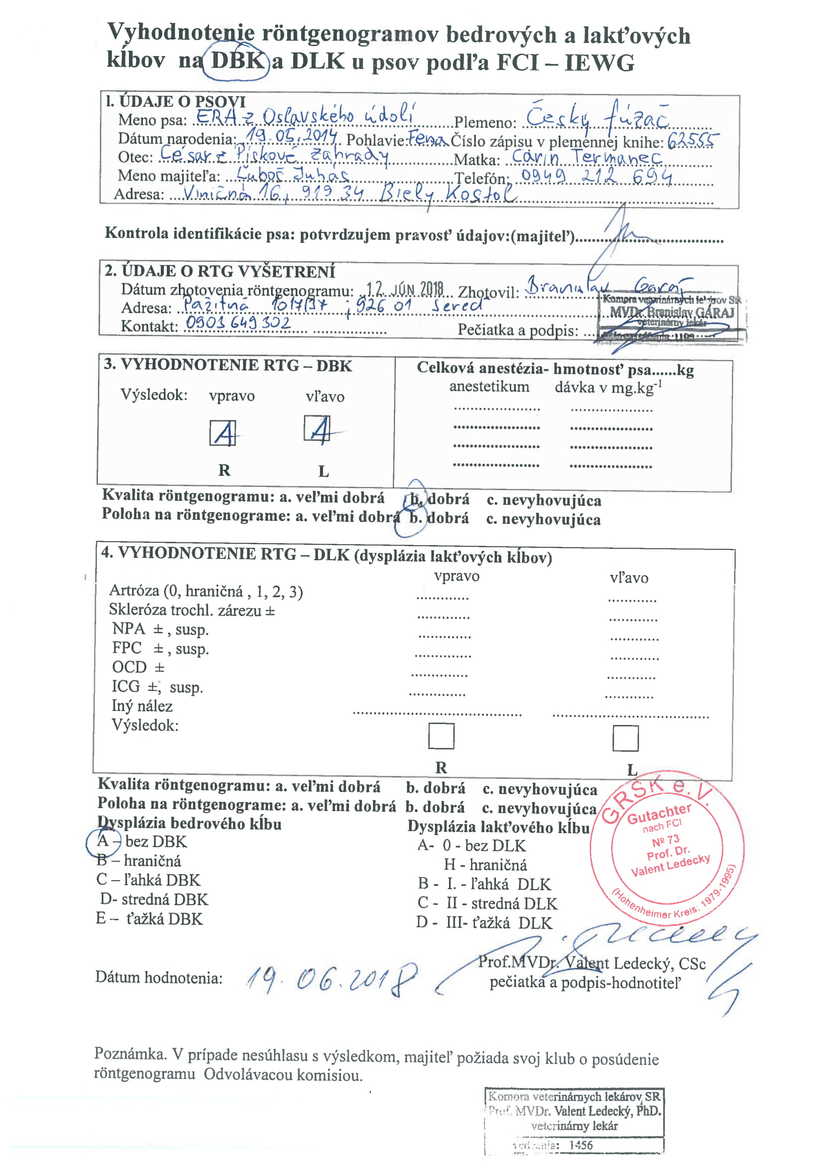 Vyhodnotenie röntgenogramov bedrových a lakťových
kĺbov na DBK a DLK u psov podľa FCI – IEWG
1. ÚDAJE O PSOVI
Meno psa: ERA z Oslavského údolí Plemeno: Český fúzač
Dátum narodenia: 19.05.2014 Pohlavie: Fena Číslo zápisu v plemennej knihe: 62555
Otec: César z Pískové zahrady Matka: Carin Termanec
Meno majiteľa: Ľuboš Juhás Telefón: 0949 212 694
Adresa: Viničná 16, 919 34 Biely Kostol
Kontrola identifikácie psa: potvrdzujem pravosť údajov:(majiteľ)
2. ÚDAJE O RTG VYŠETRENÍ
Dátum zhotovenia röntgenogramu: 12. JÚN 2018 Zhotovil: Branislav Garaj
Adresa: Pažitná 1017/37, 926 01 Sereď
Komora veterinárnych lekárov SR
MVDr. Branislav GARAJ
veterinárny lekár
Kontakt: 0903 649 302 Pečiatka a podpis:
3. VYHODNOTENIE RTG – DBK Celková anestézia- hmotnosť psa......kg
Výsledok: vpravo vľavo anestetikum dávka v mg.kg-1
A A
R L
Kvalita röntgenogramu: a. veľmi dobrá b. dobrá c. nevyhovujúca
Poloha na röntgenograme: a. veľmi dobrá b. dobrá c. nevyhovujúca
4. VYHODNOTENIE RTG – DLK (dysplázia lakťových kĺbov)
vpravo vľavo
Artróza (0, hraničná , 1, 2, 3)
Skleróza trochl. zárezu ±
NPA ± , susp.
FPC ± , susp.
OCD ±
ICG ±, susp.
Iný nález
Výsledok:
R L
Kvalita röntgenogramu: a. veľmi dobrá b. dobrá c. nevyhovujúca
Poloha na röntgenograme: a. veľmi dobrá b. dobrá c. nevyhovujúca
Dysplázia bedrového kĺbu Dysplázia lakťového kĺbu
A – bez DBK A- 0 - bez DLK
B – hraničná H - hraničná
C – ľahká DBK B - I. - ľahká DLK
D- stredná DBK C - II - stredná DLK
E – ťažká DBK D - III- ťažká DLK
GRSK e.V.
Gutachter
nach FCI
Nº 73
Prof. Dr.
Valent Ledecky
(Hohenheimer Kreis, 1979-1995)
Prof.MVDr. Valent Ledecký, CSc
Dátum hodnotenia: 19.06.2018 pečiatka a podpis-hodnotiteľ
Poznámka. V prípade nesúhlasu s výsledkom, majiteľ požiada svoj klub o posúdenie
röntgenogramu Odvolávacou komisiou.
Komora veterinárnych lekárov SR
Prof. MVDr. Valent Ledecký, PhD.
veterinárny lekár
1456